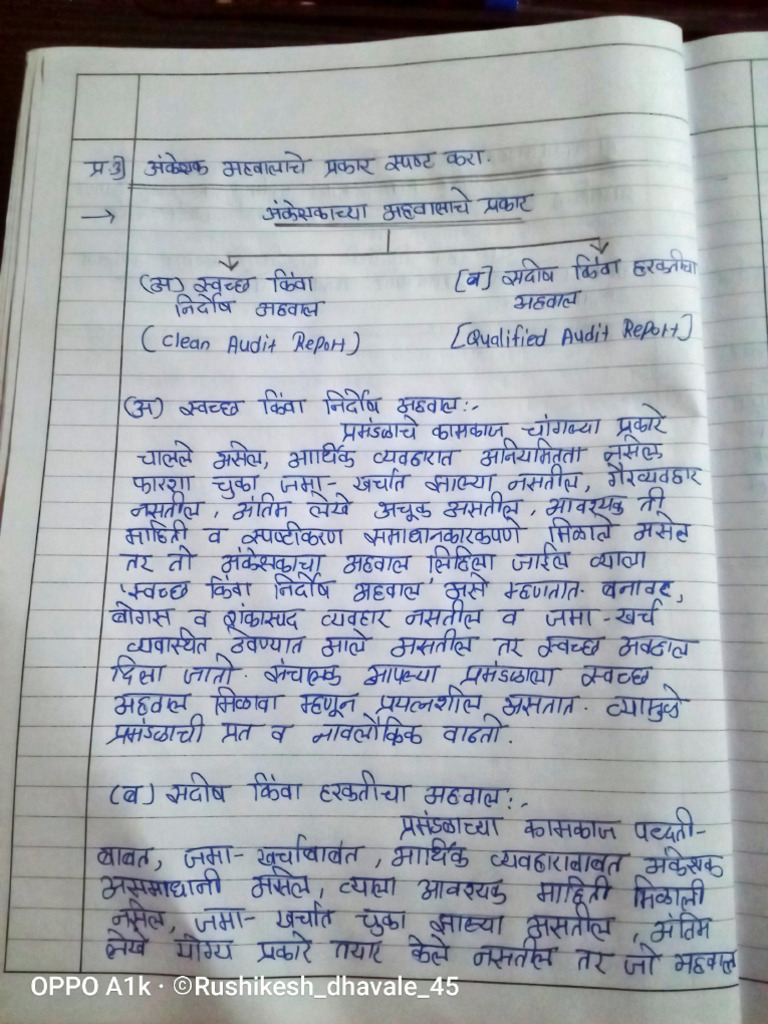 प्र.3) अंकेक्षक अहवालाचे प्रकार स्पष्ट करा.
→ अंकेक्षकाच्या अहवालाचे प्रकार
(अ) स्वच्छ किंवा [ब] सदोष किंवा हरकतीचा
निर्दोष अहवाल अहवाल
(Clean Audit Report) [Qualified Audit Report]
(अ) स्वच्छ किंवा निर्दोष अहवाल :-
प्रमंडळाचे कामकाज चांगल्या प्रकारे
चालले असेल, आर्थिक व्यवहारात अनियमितता नसेल
फारशा चुका जमा-खर्चात झाल्या नसतील, गैरव्यवहार
नसतील, अंतिम लेखे अचूक असतील, आवश्यक ती
माहिती व स्पष्टीकरण समाधानकारकपणे मिळाले असेल
तर तो अंकेक्षकाचा अहवाल लिहिला जाईल त्याला
'स्वच्छ किंवा निर्दोष अहवाल' असे म्हणतात. बनावट,
बोगस व शंकास्पद व्यवहार नसतील व जमा-खर्च
व्यवास्थित ठेवण्यात आले असतील तर स्वच्छ अवहाल
दिला जातो. संचालक आपल्या प्रमंडळाला स्वच्छ
अहवाल मिळावा म्हणून प्रयत्नशील असतात. त्यामुळे
प्रमंडळाची प्रत व नावलौकिक वाढतो.
(ब) सदोष किंवा हरकतीचा अहवाल :-
प्रमंडळाच्या कामकाज पध्दती-
बाबत, जमा-खर्चाबाबत, आर्थिक व्यवहाराबाबत अंकेक्षक
असमाधानी असेल, त्याला आवश्यक माहिती मिळाली
नसेल, जमा-खर्चात चुका झाल्या असतील, अंतिम
लेखे योग्य प्रकारे तयार केले नसतील तर जो अहवाल
OPPO A1k · ©Rushikesh_dhavale_45